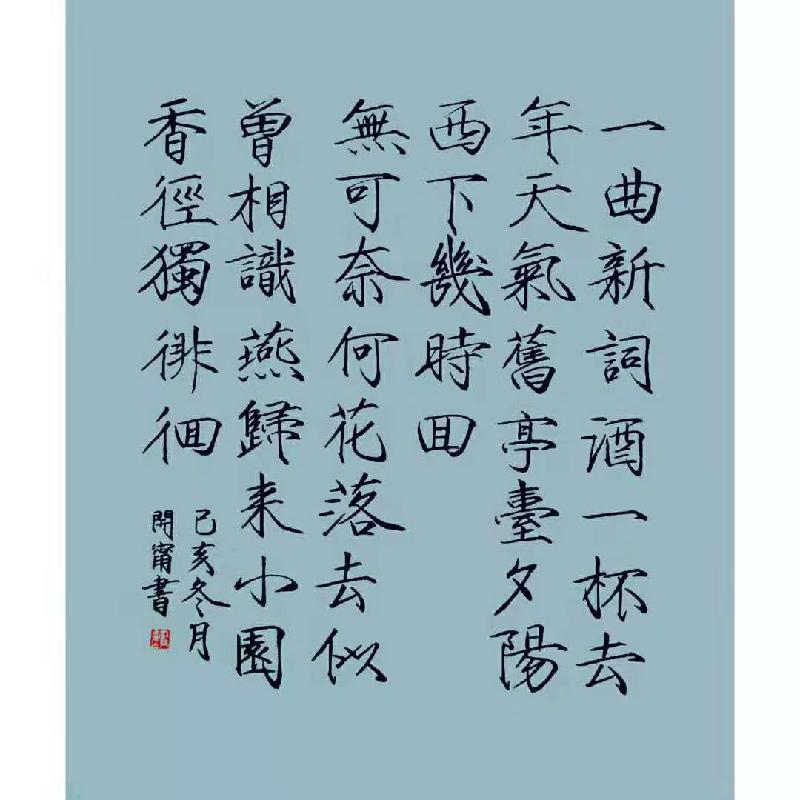 一曲新詞酒一杯去
年天氣舊亭臺夕陽
西下幾時回
無可奈何花落去似
曾相識燕歸来小園
香徑獨徘徊
己亥冬月
開甯書